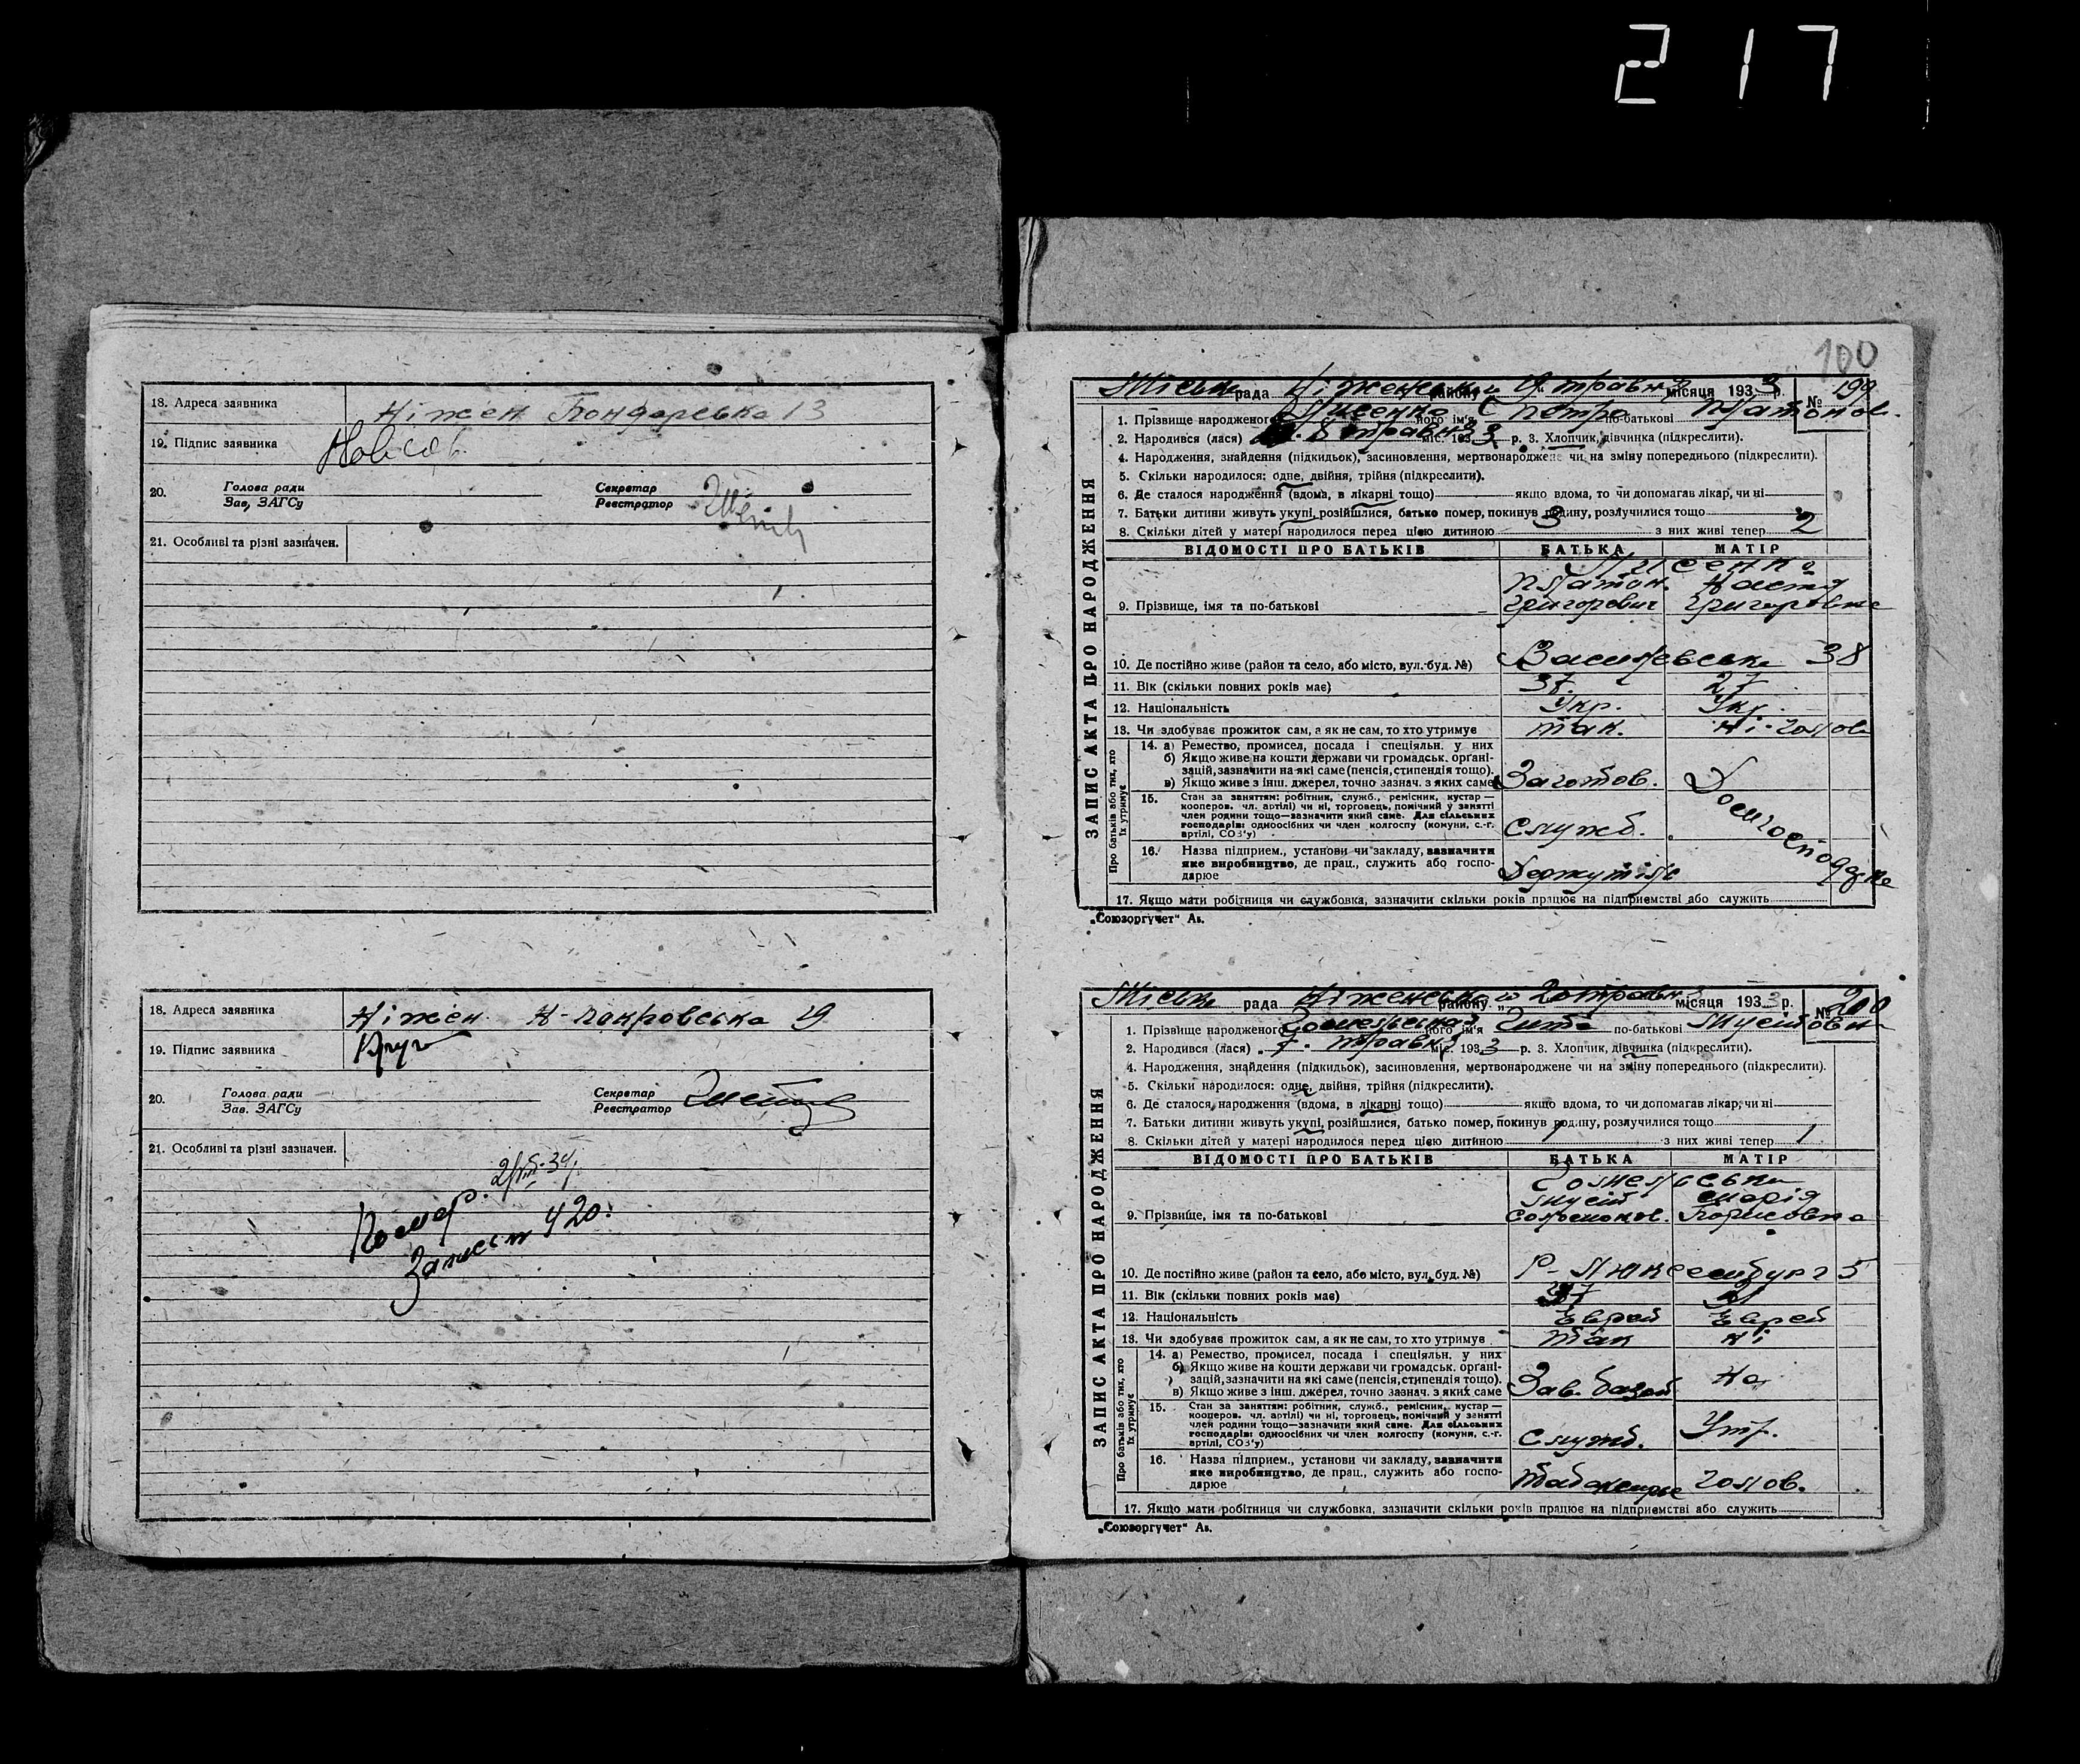 217
18. Адреса заявника Ніжен Бондарська 13
19. Підпис заявника
20. Голова ради Секретар
Зав. ЗАГСу Реєстратор
21. Особливі та різні зазначен.
18. Адреса заявника Ніжен Н-Покровська 29
19. Підпис заявника
20. Голова ради Секретар
Зав. ЗАГСу Реєстратор
21. Особливі та різні зазначен.
Помер.
Запись № 420.
100
ЗАПИС АКТА ПРО НАРОДЖЕННЯ
Міськ рада Ніженськ району „9 травня місяця 1933 р. № 199
1. Прізвище народженого Лисенко його ім'я Петро по-батькові Платонов.
2. Народився (лася) 8 травня міс. 1933 р. 3. Хлопчик, дівчинка (підкреслити).
4. Народження, знайдення (підкидьок), засиновлення, мертвонароджене чи на зміну попереднього (підкреслити).
5. Скільки народилося: одне, двійня, трійня (підкреслити).
6. Де сталося народження (вдома, в лікарні тощо) якщо вдома, то чи допомагав лікар, чи ні
7. Батьки дитини живуть укупі, розійшлися, батько помер, покинув родину, розлучилися тощо
8. Скільки дітей у матері народилося перед цією дитиною 3 з них живі тепер 2
ВІДОМОСТІ ПРО БАТЬКІВ БАТЬКА МАТІР
Лисенко
Платон Настя
9. Прізвище, імя та по-батькові Григорович Григоровна
10. Де постійно живе (район та село, або місто, вул. буд. №) Васильевська 38
11. Вік (скільки повних років має) 37. 27
12. Національність Укр. Укр.
13. Чи здобуває прожиток сам, а як не сам, то хто утримує так. Ні-голов
Про батьків або тих, хто їх утримує
14. а) Ремество, промисел, посада і спеціяльн. у них
б) Якщо живе на кошти держави чи громадськ. органі-
зацій, зазначити на які саме (пенсія, стипендія тощо).
в) Якщо живе з інш. джерел, точно зазнач. з яких саме Заготов. Домгосподарка
15. Стан за заняттям: робітник, служб., ремісник, кустар —
кооперов. чл. артілі) чи ні, торговець, помічний у занятті
член родини тощо—зазначити який саме. Для сільських
господарів: одноосібних чи член колгоспу (комуни, с.-г.
артілі, СОЗ'у) Служб.
16. Назва підприєм., установи чи закладу, зазначити
яке виробництво, де прац., служить або госпо-
дарює
17. Якщо мати робітниця чи службовка, зазначити скільки років працює на підприємстві або служить
„Союзоргучет“ Ав.
ЗАПИС АКТА ПРО НАРОДЖЕННЯ
Міськ рада Ніженськ району „ місяця 1933 р. № 200
1. Прізвище народженого його ім'я по-батькові Мусійовна
2. Народився (лася) 7. травня міс. 1933 р. 3. Хлопчик, дівчинка (підкреслити).
4. Народження, знайдення (підкидьок), засиновлення, мертвонароджене чи на зміну попереднього (підкреслити).
5. Скільки народилося: одне, двійня, трійня (підкреслити).
6. Де сталося народження (вдома, в лікарні тощо) якщо вдома, то чи допомагав лікар, чи ні
7. Батьки дитини живуть укупі, розійшлися, батько помер, покинув родину, розлучилися тощо
8. Скільки дітей у матері народилося перед цією дитиною 1 з них живі тепер 1
ВІДОМОСТІ ПРО БАТЬКІВ БАТЬКА МАТІР
Мусій Марія
9. Прізвище, імя та по-батькові Соломонов. Борисовна
10. Де постійно живе (район та село, або місто, вул. буд. №) Р-Люксембург 5
11. Вік (скільки повних років має)
12. Національність Єврей Єврей
13. Чи здобуває прожиток сам, а як не сам, то хто утримує так ні
Про батьків або тих, хто їх утримує
14. а) Ремество, промисел, посада і спеціяльн. у них
б) Якщо живе на кошти держави чи громадськ. органі-
зацій, зазначити на які саме (пенсія, стипендія тощо).
в) Якщо живе з інш. джерел, точно зазнач. з яких саме Зав. базой На
15. Стан за заняттям: робітник, служб., ремісник, кустар —
кооперов. чл. артілі) чи ні, торговець, помічний у занятті
член родини тощо—зазначити який саме. Для сільських
господарів: одноосібних чи член колгоспу (комуни, с.-г.
артілі, СОЗ'у) Служб. Утр.
16. Назва підприєм., установи чи закладу, зазначити
яке виробництво, де прац., служить або госпо-
дарює голов.
17. Якщо мати робітниця чи службовка, зазначити скільки років працює на підприємстві або служить
„Союзоргучет“ Ав.